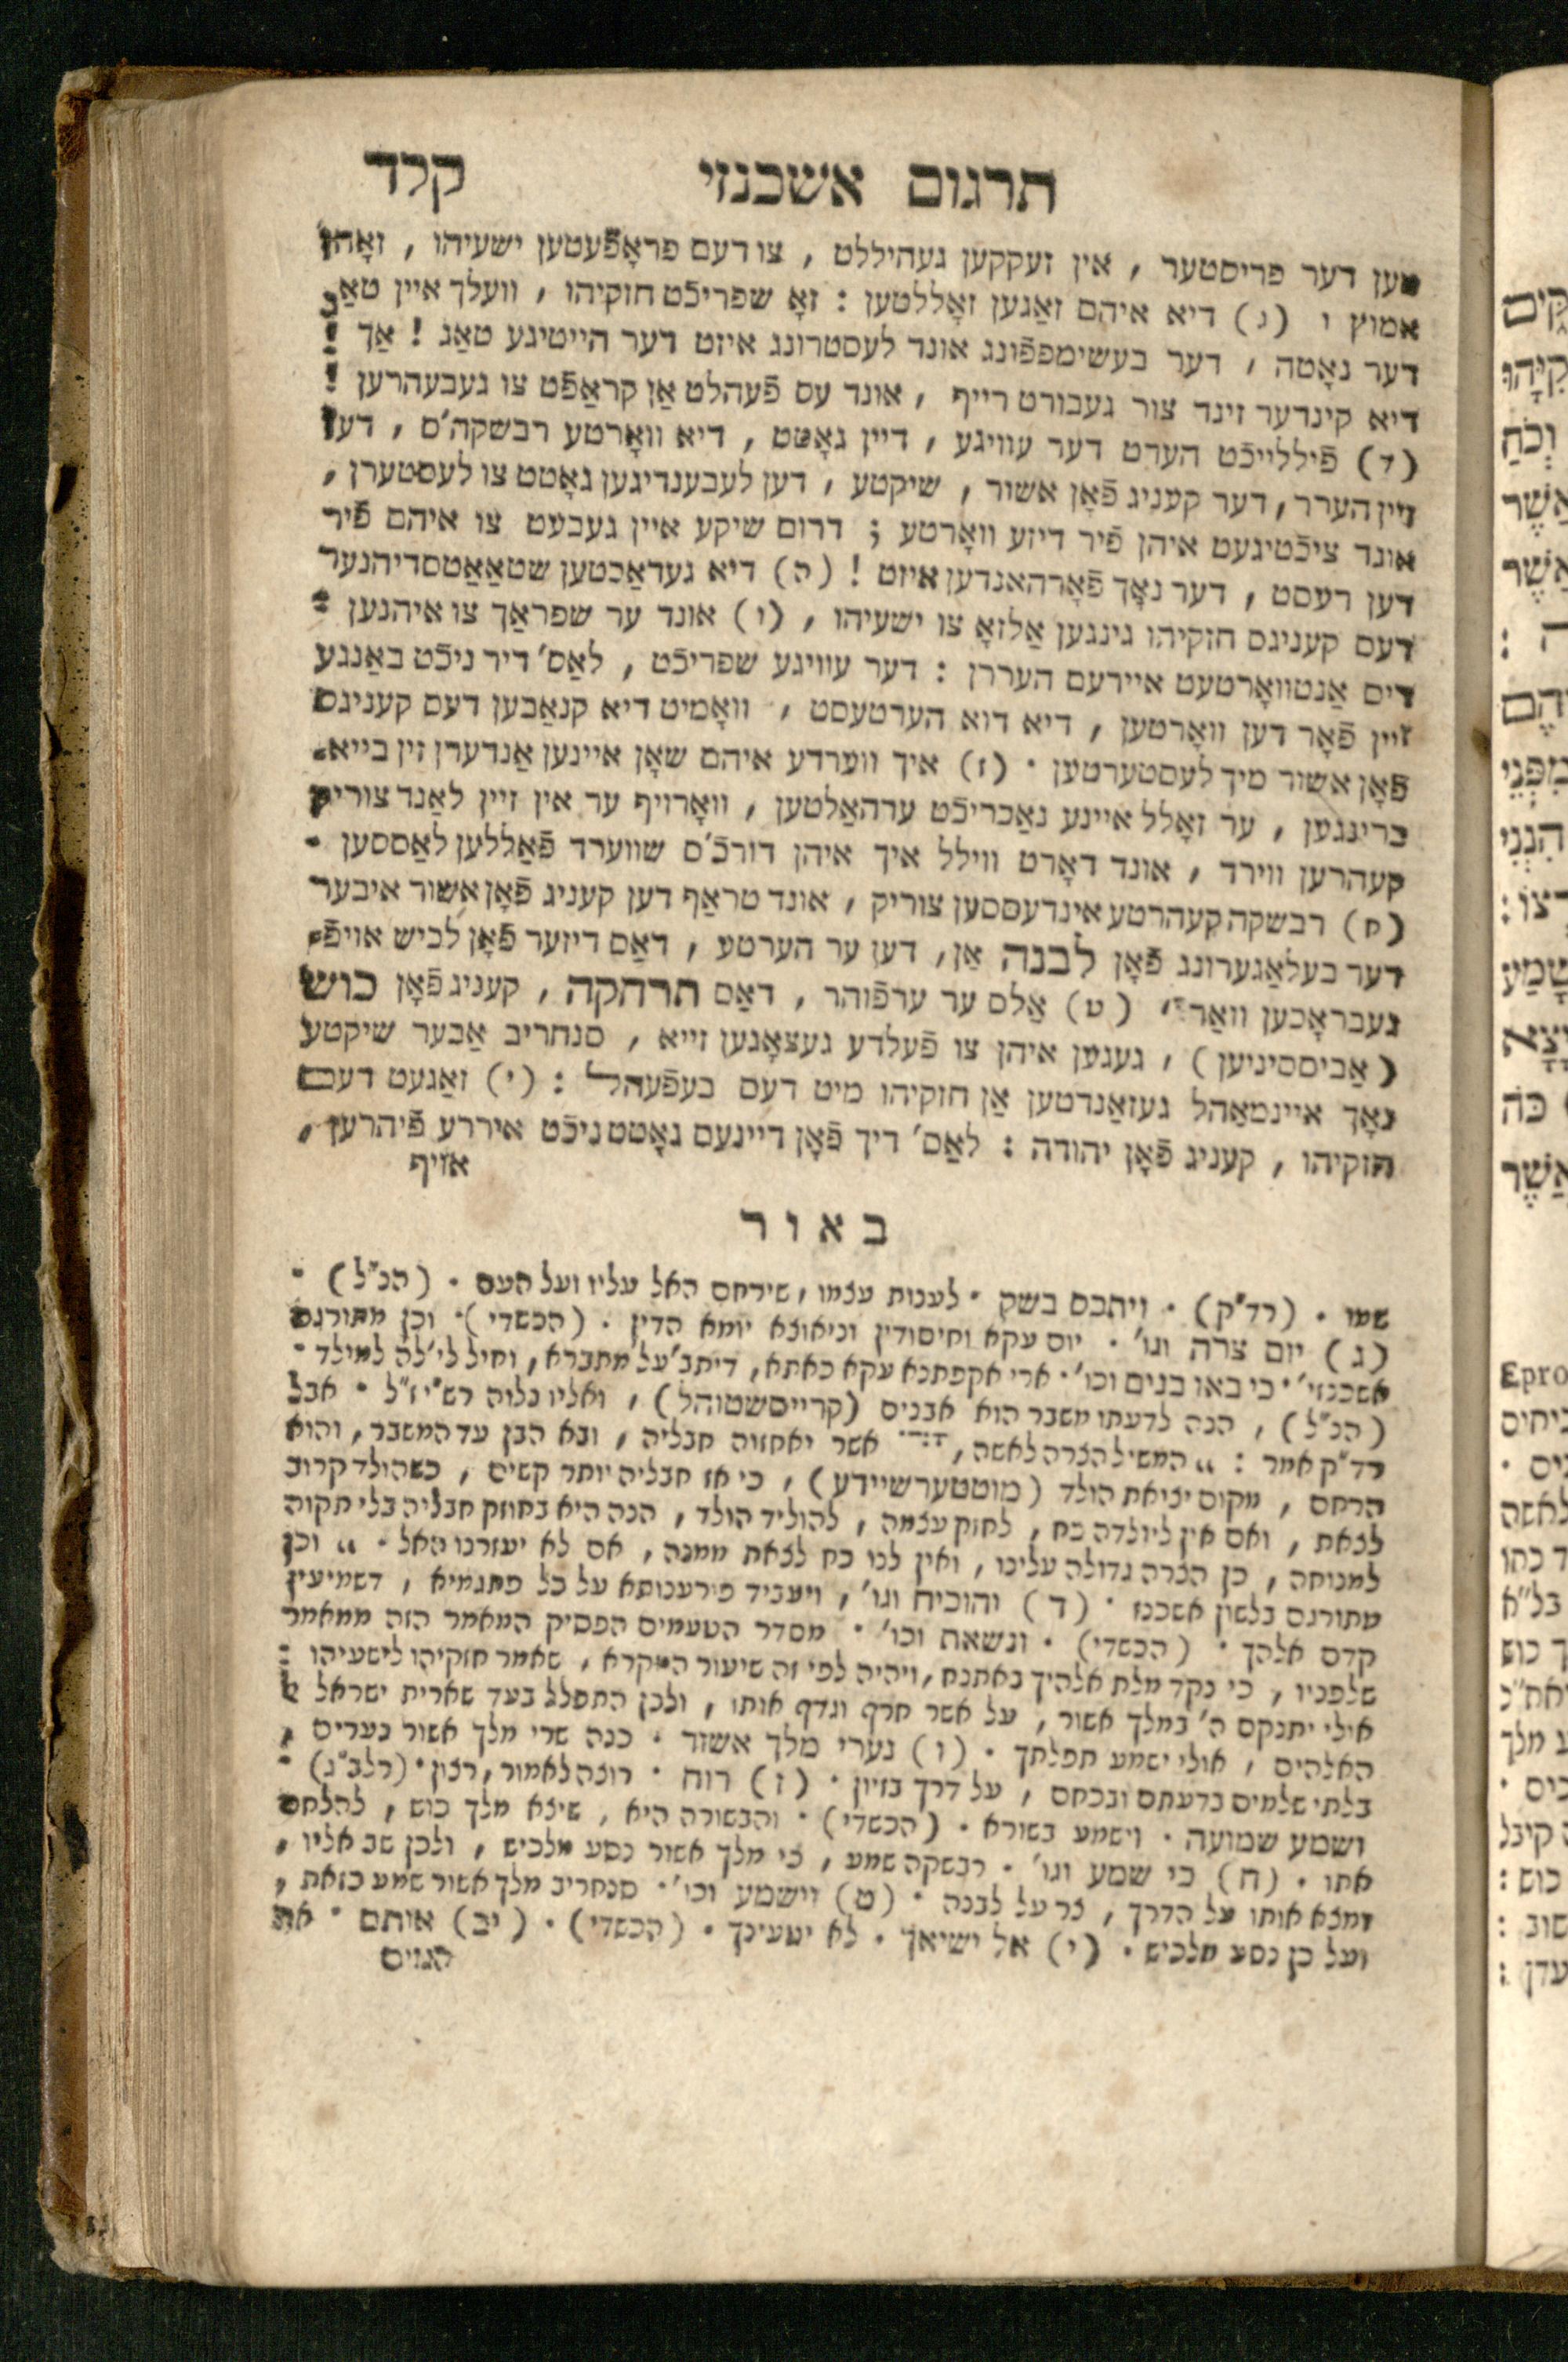 תרגום אשכנזי קלד
טען דער פריסטער, אין זעקקען געהיללט, צו דעם פראָפֿעטען ישעיהו, זאָהן
אמוץ ו (ג) דיא איהם זאַגען זאָללטען: זאָ שפריכֿט חזקיהו, וועלך איין טאַג
דער נאָטה, דער בעשימפפֿונג אונד לעסטרונג איזט דער הייטיגע טאַג! אַך!
דיא קינדער זינד צור געבורט רייף, אונד עס פֿעהלט אַן קראַפֿט צו געבעהרען!
(ד) פֿיללייכֿט הערט דער עוויגע, דיין גאָטט, דיא וואָרטע רבשקה'ס, דען
זיין הערר, דער קעניג פֿאָן אשור, שיקטע, דען לעבענדיגען גאָטט צו לעסטערן,
אונד ציכֿטיגעט איהן פֿיר דיזע וואָרטע; דרום שיקע איין געבעט צו איהם פֿיר
דען רעסט, דער נאָך פֿאָרהאנדען איזט! (ה) דיא געדאַכטען שטאַאַטסדיהנער
דעם קעניגס חזקיהו גינגען אַלזאָ צו ישעיהו, (ו) אונד ער שפראַך צו איהנען:
דיס אַנטוואָרטעט איירעם העררן: דער עוויגע שפריכֿט, לאַס' דיר ניכֿט באַנגע
זיין פֿאָר דען וואָרטען, דיא דוא הערטעסט, וואָמיט דיא קנאַבען דעס קעניגס
פֿאָן אשור מיך לעסטערטען. (ז) איך ווערדע איהם שאָן איינען אַנדערן זין בייא-
ברינגען, ער זאָלל איינע נאַכריכֿט ערהאַלטען, וואָרויף ער אין זיין לאַנד צוריק
קעהרען ווירד, אונד דאָרט ווילל איך איהן דורכֿ'ס שווערד פֿאַללען לאַססען.
(ח) רבשקה קעהרטע אינדעססען צוריק, אונד טראַף דען קעניג פֿאָן אשור איבער
דער בעלאַגערונג פֿאָן לבנה אַן, דען ער הערטע, דאַס דיזער פֿאָן לכיש אויפֿ-
געבראָכען וואַר. (ט) אַלס ער ערפֿוהר, דאַס תרהקה, קעניג פֿאָן כוש
(אַביססיניען), געגען איהן צו פֿעלדע געצאָגען זייא, סנחריב אַבער שיקטע
נאָך איינמאַהל געזאַנדטען אַן חזקיהו מיט דעם בעפֿעהל: (י) זאַגעט דעם
חזקיהו, קעניג פֿאָן יהודה: לאַס' דיך פֿאָן דיינעם גאָטט ניכֿט איררע פֿיהרען,
אויף
באור
שמו. (רד"ק). ויתכס בשק. לענות עצמו, שירחם האל עליו ועל העם. (הנ"ל).
(ג) יום צרה וגו'. יום עקא וחיסודין וניאוצא יומא הדין. (הכשדי). וכן מתורגם
אשכנזי. כי באו בנים וכו'. ארי אקפתנא עקא כאתא, דיתב' על מתברא, וחיל לי' לה למילד.
(הנ"ל), הנה לדעתו משבר הוא אבנים (קרייסשטוהל), ואליו נלוה רש"י ז"ל. אבל
רד"ק אמר: „המשיל הצרה לאשה, אשר יאחזוה חבליה, ובא הבן עד המשבר, והוא
הרחם, מקום יציאת הולד (מוטטערשיידע), כי אז חבליה יותר קשים, כשהולד קרוב
לצאת, ואם אין ליולדה כח, לחזק עצמה, להוליד הולד, הנה היא בחוזק חבליה בלי תקוה
למנוחה, כן הצרה גדולה עלינו, ואין לנו כח לצאת ממנה, אם לא יעזרנו האל. „ וכן
מתורגם בלשון אשכנז. (ד) והוכיח וגו', ויעביד פירענותא על כל פתגמיא, דשמיעין
קדם אלהך. (הכשדי). ונשאת וכו'. מסדר הטעמים הפסיק המאמר הזה ממאמר
שלפניו, כי נקד מלת אלהיך באתנח, ויהיה לפי זה שיעור המקרא, שאמר חזקיהו לישעיהו:
אולי יתנקם ה' במלך אשור, על אשר חרף וגדף אותו, ולכן התפלל בעד שארית ישראל אל
האלהים, אולי ישמע תפלתך. (ו) נערי מלך אשור. כנה שרי מלך אשור נערים,
בלתי שלמים בדעתם ובכחם, על דרך בזיון. (ז) רוח. רוצה לאמור, רצון. (רלב"ג).
ושמע שמועה. וישמע בשורא. (הכשדי). והבשורה היא, שיצא מלך כוש, להלחם
אתו. (ח) כי שמע וגו'. רבשקה שמע, כי מלך אשור נסע מלכיש, ולכן שב אליו,
ומצא אותו על הדרך, צר על לבנה. (ט) וישמע וכו'. סנחריב מלך אשור שמע כזאת,
ועל כן נסע מלכיש. (י) אל ישיאך. לא יטעינך. (הכשדי). (יב) אותם. את
הגוים